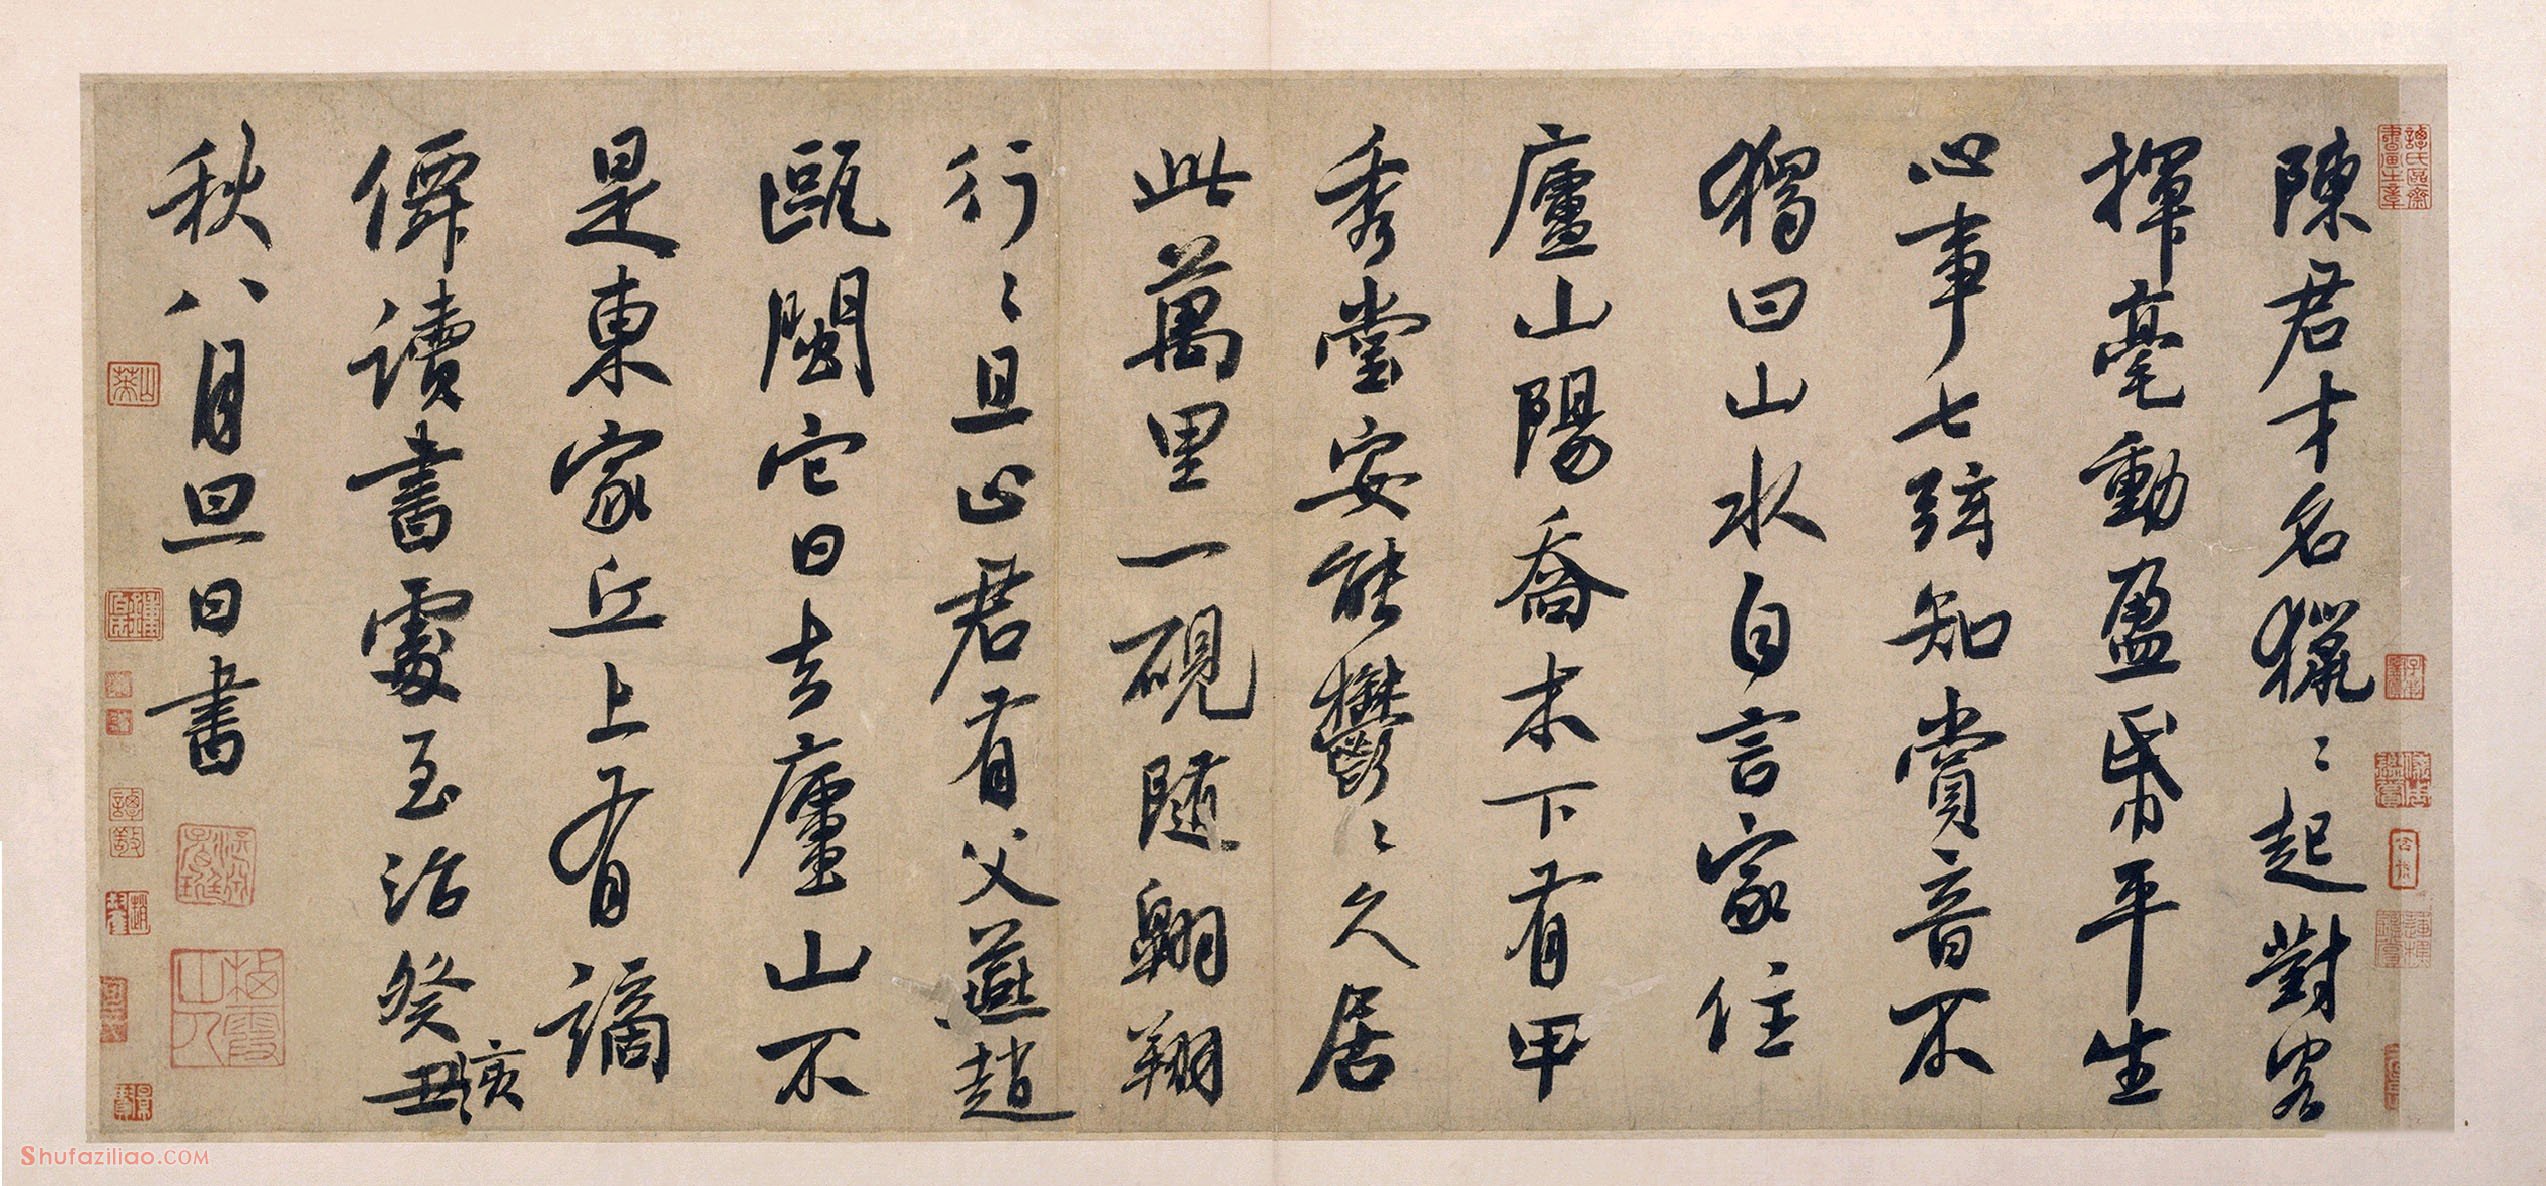 陳君才名獵〻起對客
揮毫動盈帋平生
心事七弦知賞音不
獨曰山水自言家住
廬山陽喬木下有甲
秀堂安能鬱〻久居
此萬里一硯隨翱翔
行〻且止君有父燕趙
甌閩它日去廬山不
是東家丘上有謫
僊讀書處至治癸丑亥
秋八月旦日書
Shufaziliao.COM